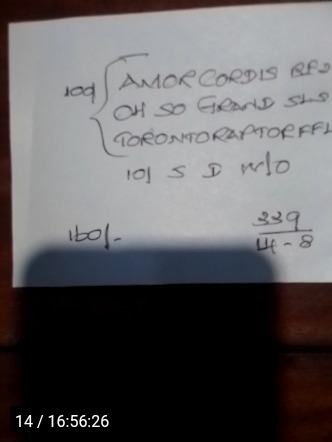 109 AMOR CORDIS RF2
OH SO GRAND SLS
TORONTORAPTORFFL
10/ S D W/O
160/-
339
14-8
14 / 16:56:26